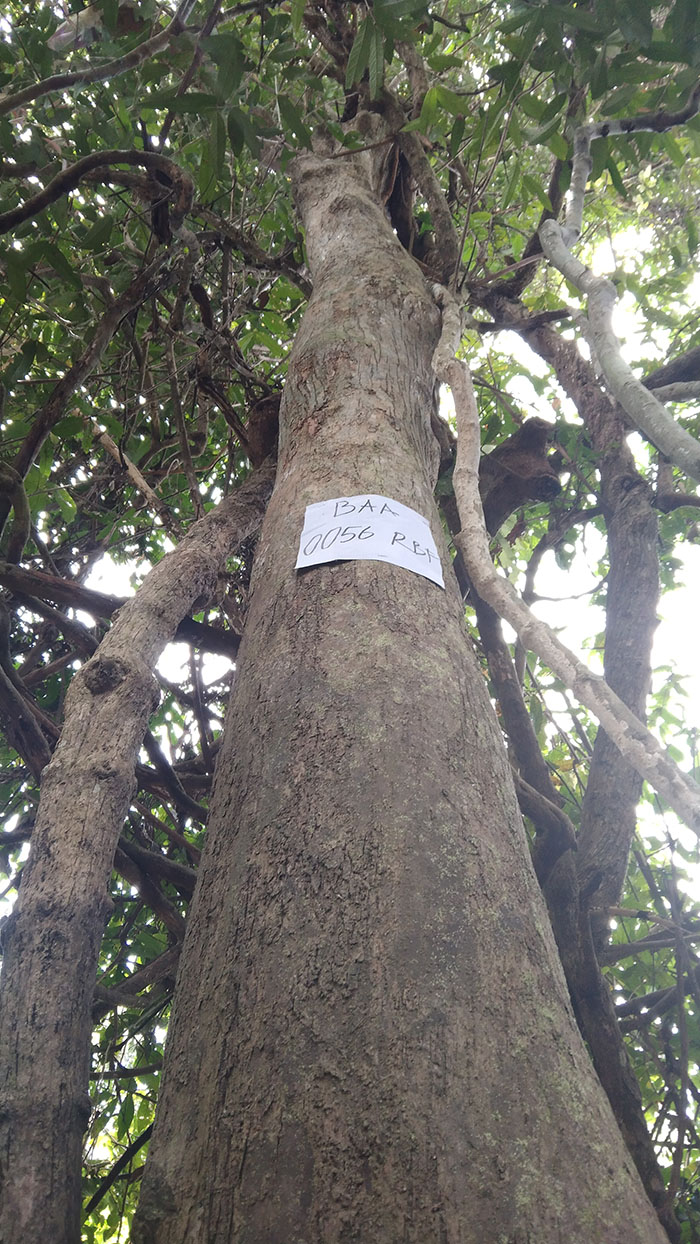 BAA
0056 RBA